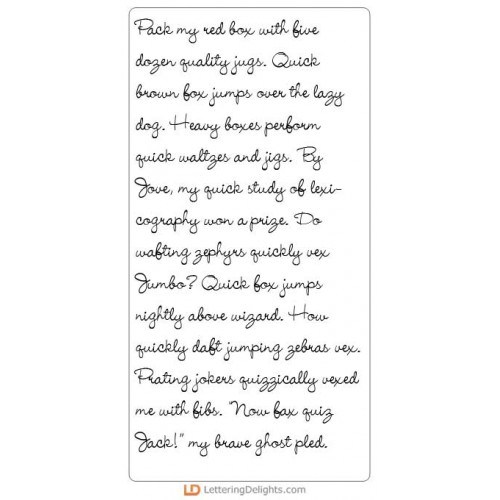 Pack my red box with five
dozen quality jugs. Quick
brown fox jumps over the lazy
dog. Heavy boxes perform
quick waltzes and jigs. By
Jove, my quick study of lexi-
cography won a prize. Do
wafting zephyrs quickly vex
Jumbo? Quick fox jumps
nightly above wizard. How
quickly daft jumping zebras vex.
Prating jokers quizzically vexed
me with fibs. "Now fax quiz
Jack!" my brave ghost pled.
LD LetteringDelights.com